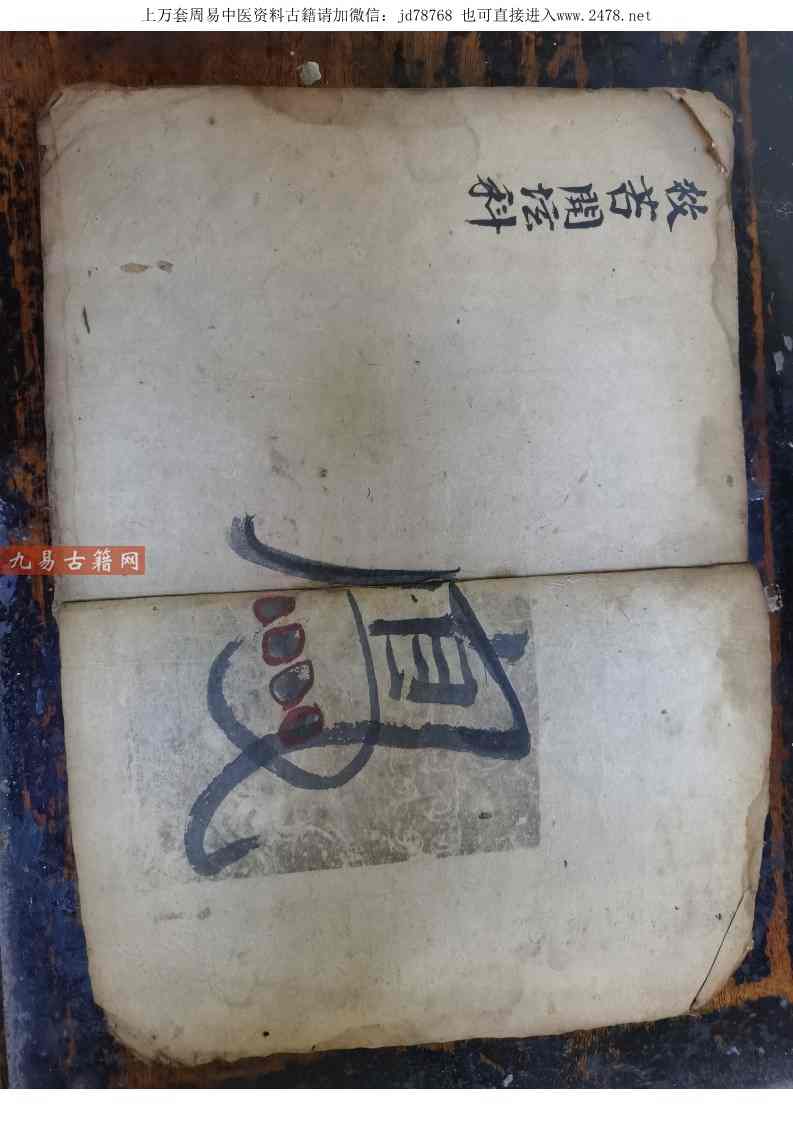 上万套周易中医资料古籍请加微信：jd78768 也可直接进入www.2478.net
救苦開科
九易古籍网